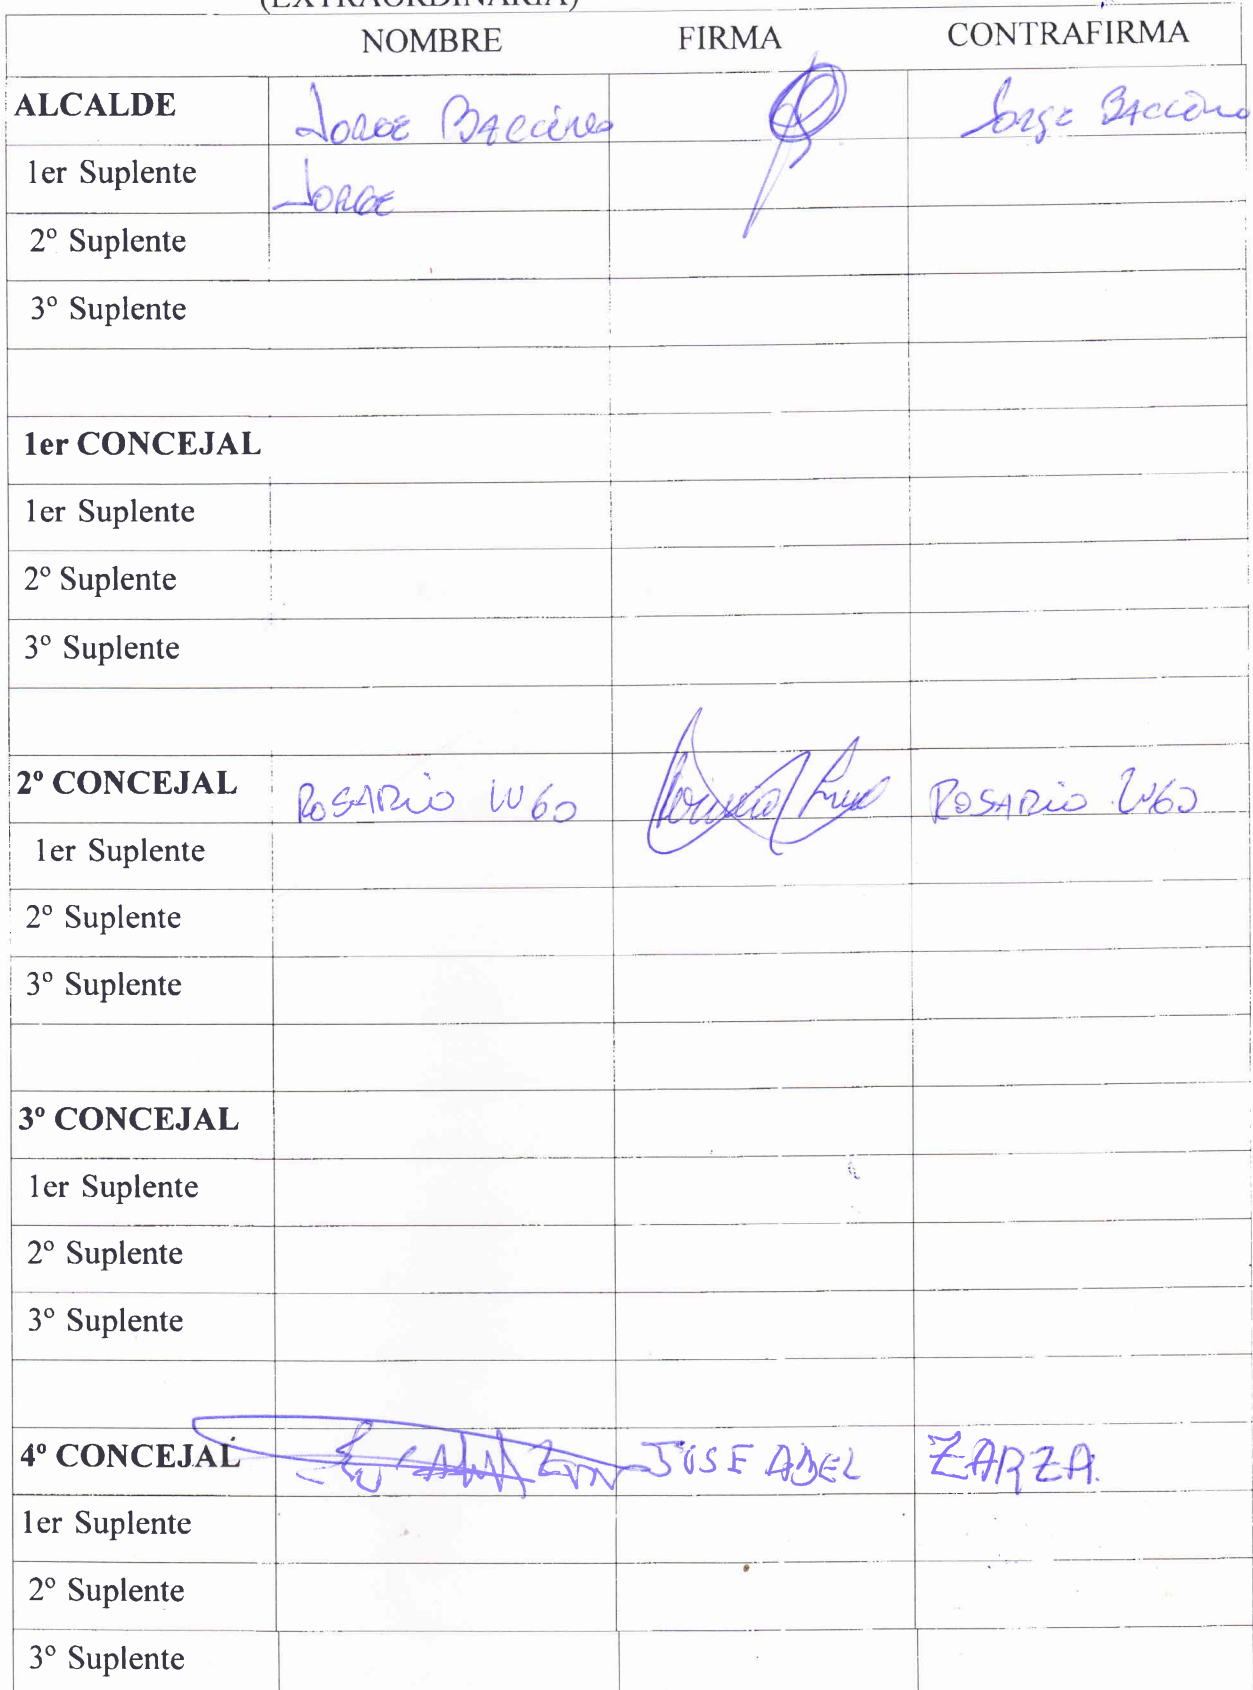 (EXTRAORDINARIA)
NOMBRE FIRMA CONTRAFIRMA
ALCALDE Jorge Baccino Jorge Baccino
1er Suplente Jorge
2º Suplente
3º Suplente
1er CONCEJAL
1er Suplente
2º Suplente
3º Suplente
2º CONCEJAL ROSARIO LUGO ROSARIO LUGO
1er Suplente
2º Suplente
3º Suplente
3º CONCEJAL
1er Suplente
2º Suplente
3º Suplente
4º CONCEJAL JOSE ABEL ZARZA.
1er Suplente
2º Suplente
3º Suplente